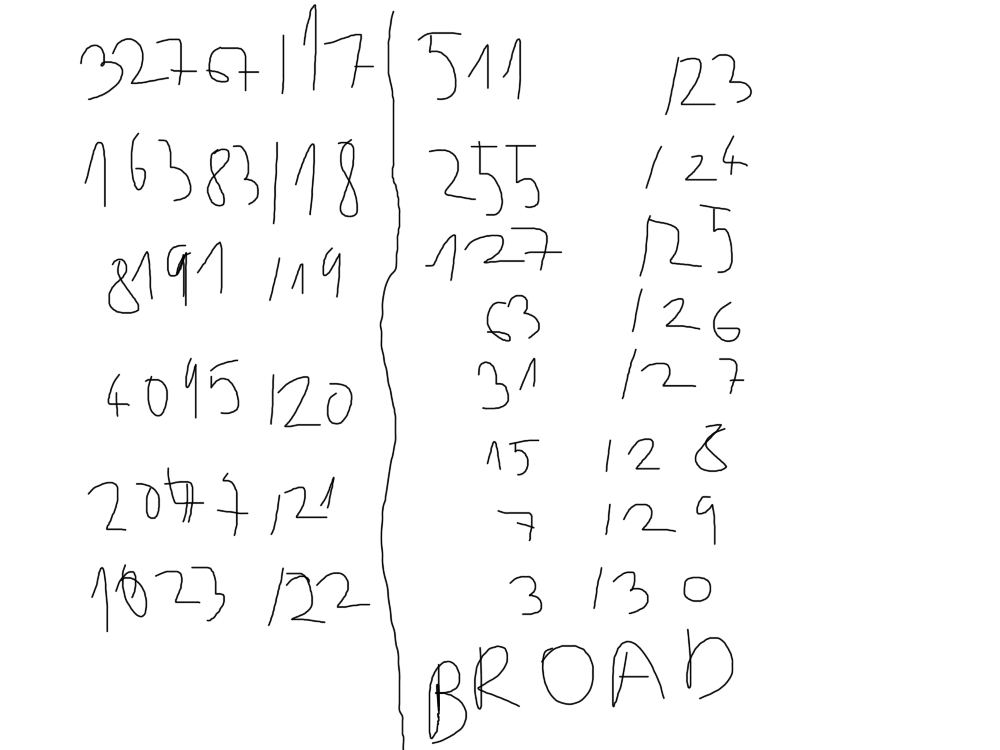 32767 /17
16383 /18
8191 /19
4095 /20
2047 /21
1023 /22
511 /23
255 /24
127 /25
63 /26
31 /27
15 /28
7 /29
3 /30
BROAD